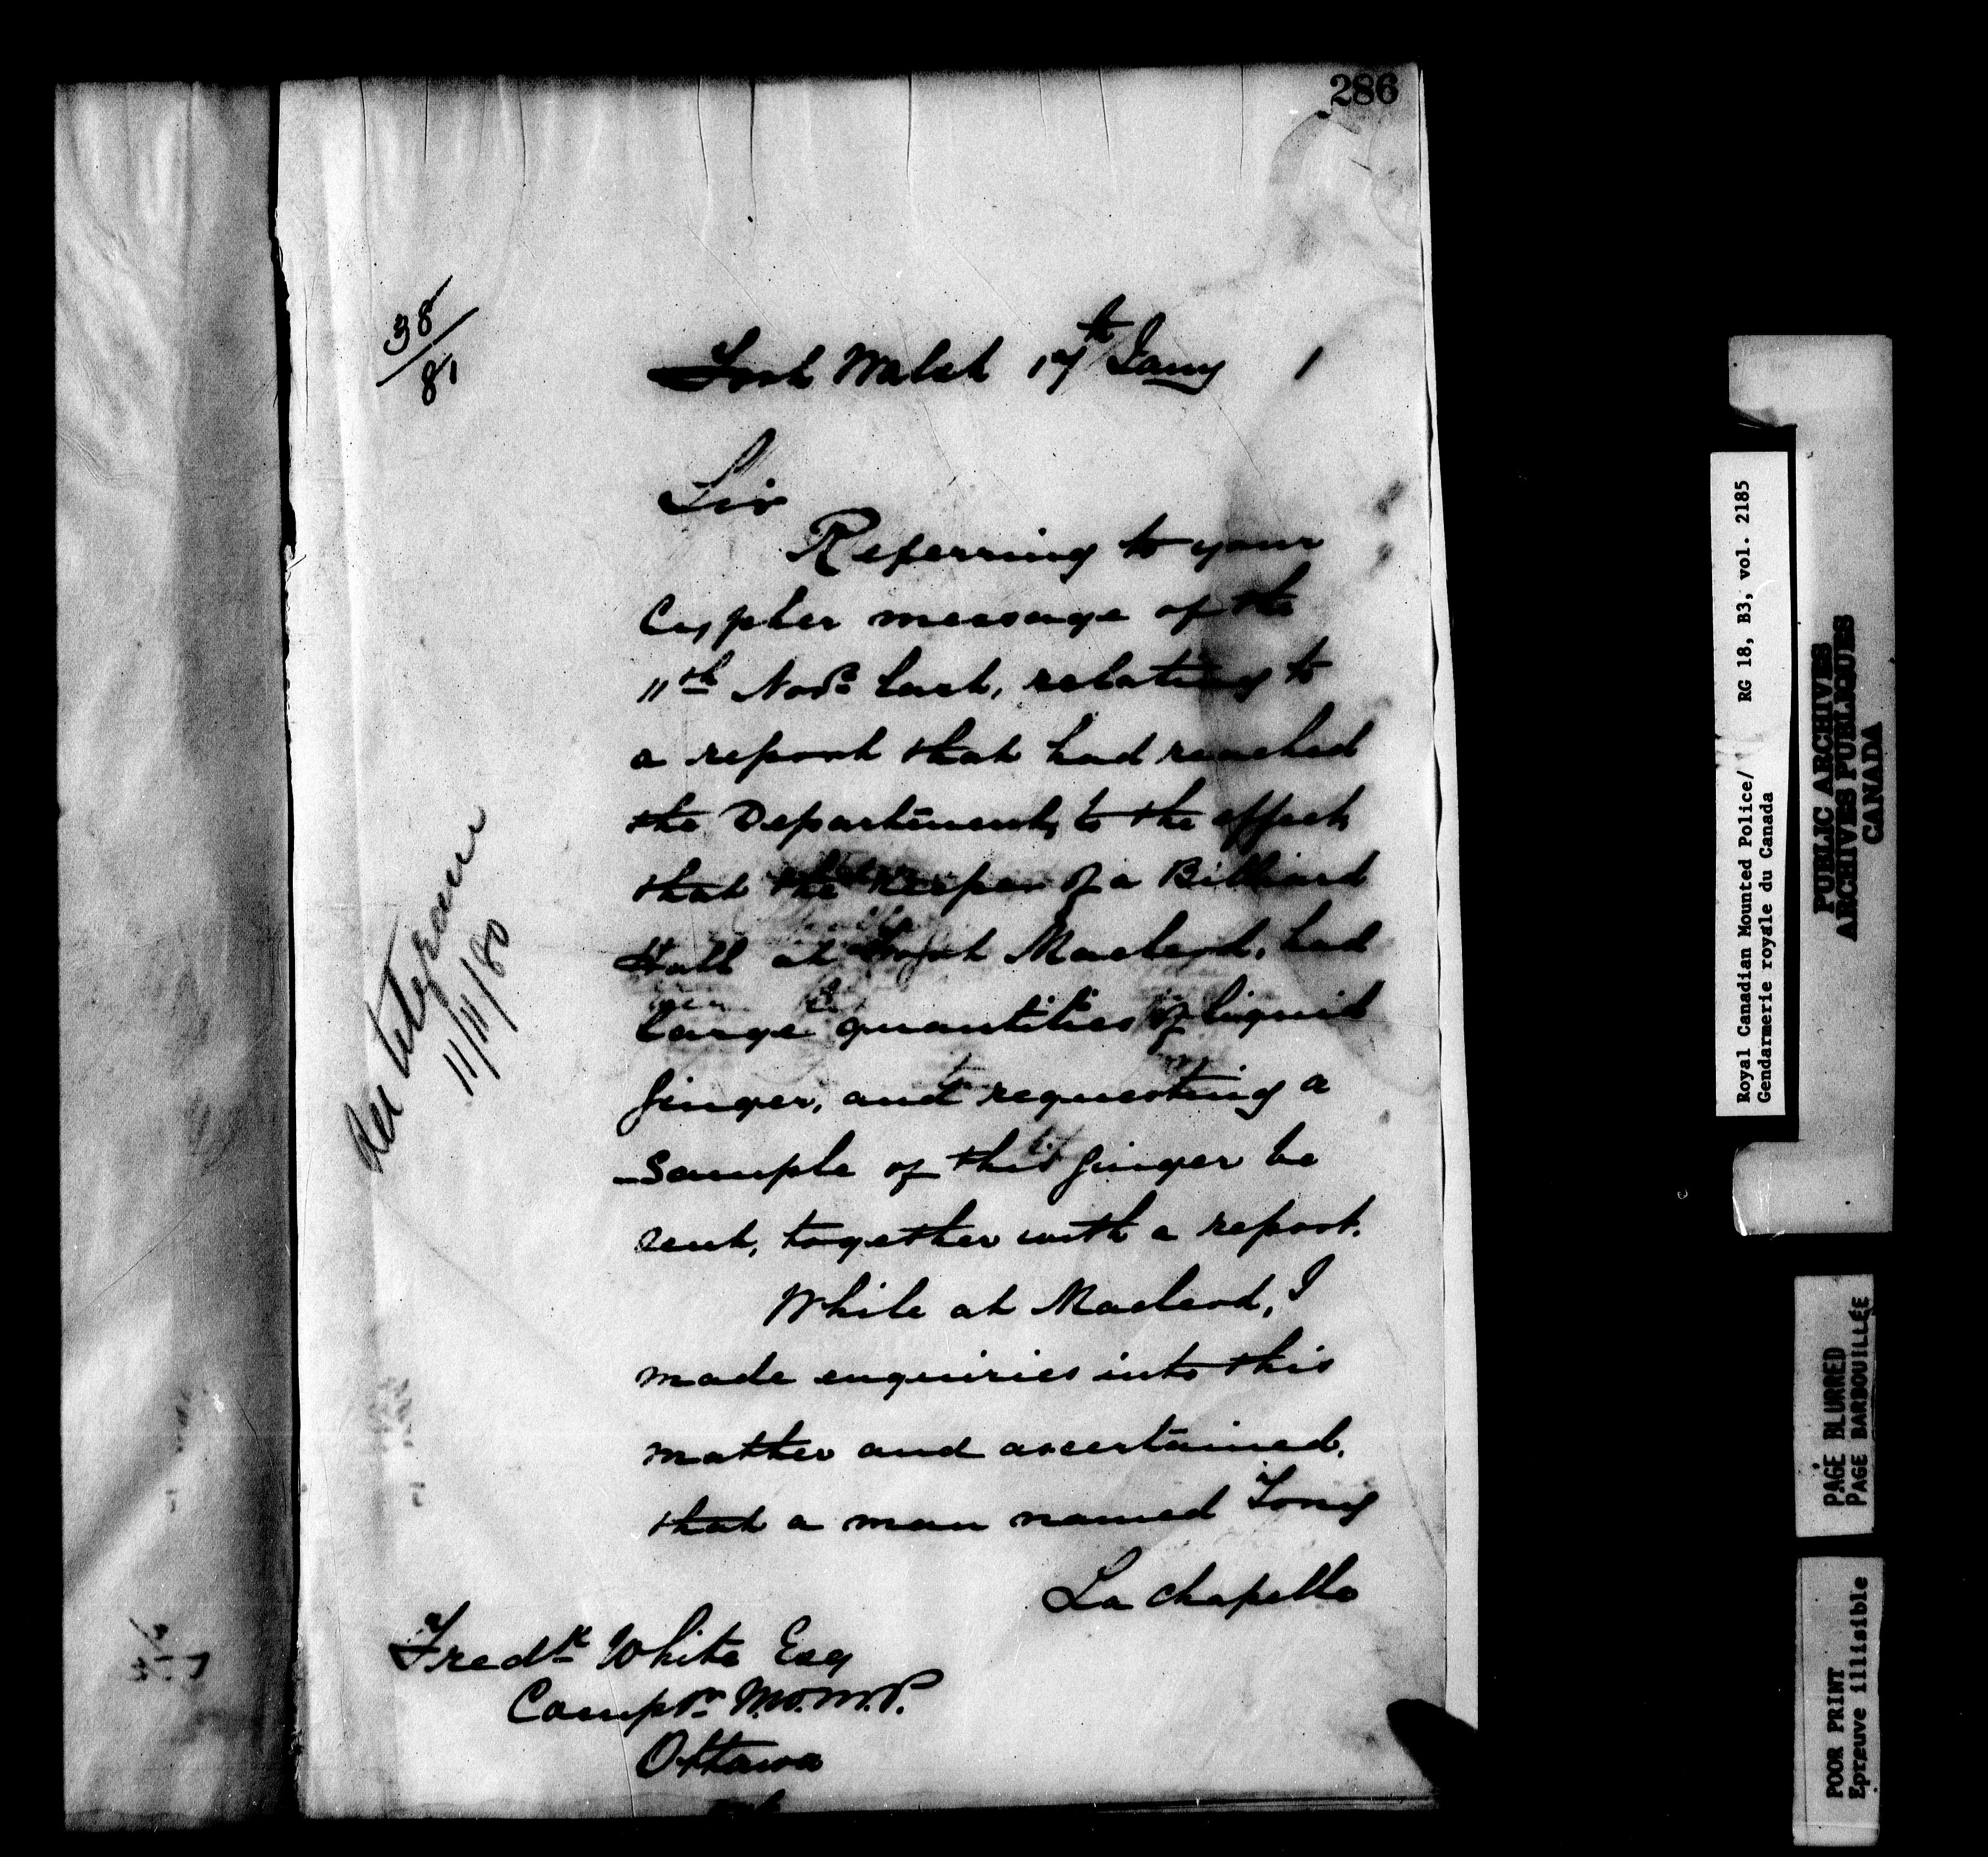 286
38/81
Fort Walsh 17th Jany 1
Sir
Referring to your
Cypher message of the
11th Novr last, relating to
a report that had reached
the Department, to the effect
that the keeper of a Billiard
Hall at Fort Macleod, had
large quantities of liquid
Ginger, and requesting a
Sample of this Ginger be
sent, together with a report.
While at Macleod, I
made enquiries into this
matter and ascertained,
that a man named Tony
La Chapelle
Fredk White Esq
Compr N.W.M.P.
Ottawa
telegram
11/11/80
Royal Canadian Mounted Police/ RG 18, B3, vol. 2185
Gendarmerie royale du Canada
PUBLIC ARCHIVES
ARCHIVES PUBLIQUES
CANADA
PAGE BLURRED
PAGE BARBOUILLÉE
POOR PRINT
Epreuve illisible